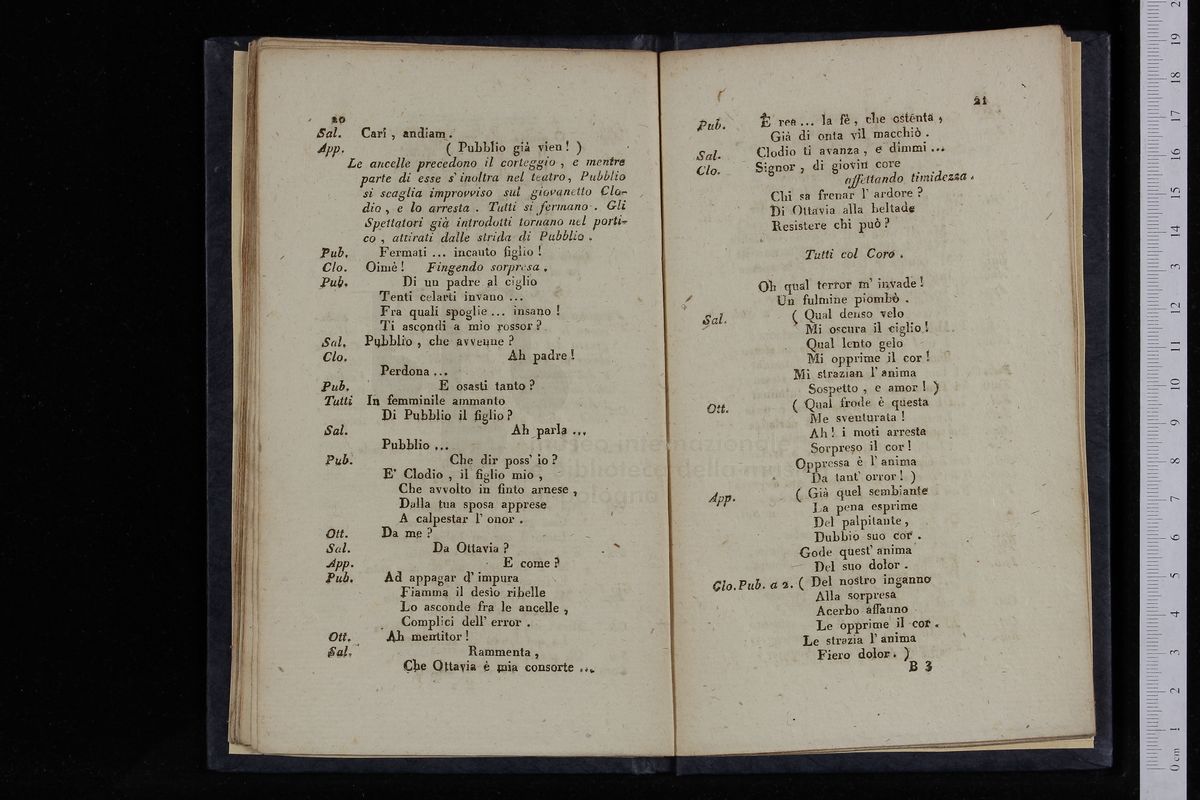 20
Sal. Cari , andiam .
App. ( Pubblio già vien ! )
Le ancelle precedono il corteggio , e mentre
parte di esse s' inoltra nel teatro, Pubblio
si scaglia improvviso sul giovanetto Clo-
dio , e lo arresta . Tutti si fermano . Gli
Spettatori già introdotti tornano nel porti-
co , attirati dalle strida di Pubblio .
Pub. Fermati ... incauto figlio !
Clo. Oimè ! Fingendo sorpresa .
Pub. Di un padre al ciglio
Tenti celarti invano ...
Fra quali spoglie ... insano !
Ti ascondi a mio rossor ?
Sal. Pubblio , che avvenne ?
Clo. Ah padre !
Perdona ...
Pub. E osasti tanto ?
Tutti In femminile ammanto
Di Pubblio il figlio ?
Sal. Ah parla ...
Pubblio ...
Pub. Che dir poss' io ?
E' Clodio , il figlio mio ,
Che avvolto in finto arnese ,
Dalla tua sposa apprese
A calpestar l' onor .
Ott. Da me ?
Sal. Da Ottavia ?
App. E come ?
Pub. Ad appagar d' impura
Fiamma il desìo ribelle
Lo asconde fra le ancelle ,
Complici dell' error .
Ott. Ah mentitor !
Sal. Rammenta ,
Che Ottavia è mia consorte ...
21
Pub. È rea ... la fè , che ostenta ,
Già di onta vil macchiò .
Sal. Clodio ti avanza , e dimmi ...
Clo. Signor , di giovin core
affettando timidezza .
Chi sa frenar l' ardore ?
Di Ottavia alla beltade
Resistere chi può ?
Tutti col Coro .
Oh qual terror m' invade !
Un fulmine piombò .
Sal. ( Qual denso velo
Mi oscura il ciglio !
Qual lento gelo
Mi opprime il cor !
Mi strazian l' anima
Sospetto , e amor ! )
Ott. ( Qual frode è questa
Me sventurata !
Ah ! i moti arresta
Sorpreso il cor !
Oppressa è l' anima
Da tant' orror ! )
App. ( Già quel sembiante
La pena esprime
Del palpitante ,
Dubbio suo cor .
Gode quest' anima
Del suo dolor .
Clo. Pub. a 2. ( Del nostro inganno
Alla sorpresa
Acerbo affanno
Le opprime il cor .
Le strazia l' anima
Fiero dolor . )
B 3
museo internazionale
biblioteca della musica
bologna
0 cm 1 2 3 4 5 6 7 8 9 10 11 12 13 14 15 16 17 18 19